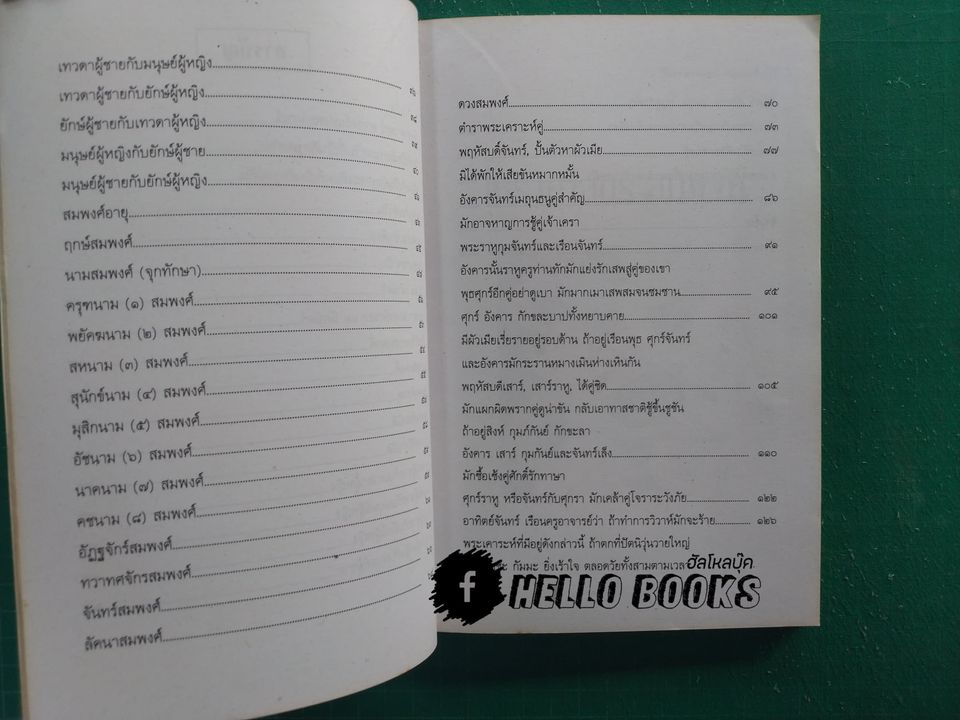 เทวดาผู้ชายกับมนุษย์ผู้หญิง
เทวดาผู้ชายกับยักษ์ผู้หญิง
ยักษ์ผู้ชายกับเทวดาผู้หญิง
มนุษย์ผู้หญิงกับยักษ์ผู้ชาย
มนุษย์ผู้ชายกับยักษ์ผู้หญิง
สมพงศ์อายุ
ฤกษ์สมพงศ์
นามสมพงศ์ (จุกทักษา)
ครุฑนาม (๑) สมพงศ์
พยัคฆนาม (๒) สมพงศ์
สหนาม (๓) สมพงศ์
สุนักข์นาม (๔) สมพงศ์
มุสิกนาม (๕) สมพงศ์
อัชนาม (๖) สมพงศ์
นาคนาม (๗) สมพงศ์
คชนาม (๘) สมพงศ์
อัฏฐจักร์สมพงศ์
ทวาทศจักรสมพงศ์
จันทร์สมพงศ์
ลัคนาสมพงศ์
ดวงสมพงศ์ ๗๐
ตำราพระเคราะห์คู่ ๗๓
พฤหัสบดิ์จันทร์, ปั้นตัวหาผัวเมีย ๗๗
มิได้พักให้เสียขันหมากหมั้น
อังคารจันทร์เมถุนธนูคู่สำคัญ ๘๖
มักอาจหาญการชู้คู่เจ้าเครา
พระราหูกุมจันทร์และเรือนจันทร์ ๙๑
อังคารนั้นราหูครูท่านทักมักแย่งรักเสพสู่คู่ของเขา
พุธศุกร์อีกคู่อย่าดูเบา มักมากเมาเสพสมจนชมชาน ๙๕
ศุกร์ อังคาร กักขละบาปทั้งหยาบคาย ๑๐๑
มีผัวเมียเรี่ยรายอยู่รอบด้าน ถ้าอยู่เรือนพุธ ศุกร์จันทร์
และอังคารมักระรานหมางเมินห่างเหินกัน
พฤหัสบดีเสาร์, เสาร์ราหู, ได้คู่ชิด ๑๐๕
มักแผกผิดพรากคู่ดูน่าขัน กลับเอาทาสชาติชู้ขึ้นชูชัน
ถ้าอยู่สิงห์ กุมภ์กันย์ กักขะลา
อังคาร เสาร์ กุมกันย์และจันทร์เล็ง ๑๑๐
มักซื้อเช้งคู่ศักดิ์รักทาษา
ศุกร์ราหู หรือจันทร์กับศุกรา มักเคล้าคู่โจราระวังภัย ๑๒๒
อาทิตย์จันทร์ เรือนครูอาจารย์ว่า ถ้าทำการวิวาห์มักจะร้าย ๑๒๖
พระเคาระห์ที่มีอยู่ดังกล่าวนี้ ถ้าตกที่ปัตนิวุ่นวายใหญ่
กัมมะ ยิ่งเร้าใจ ตลอดวัยทั้งสามตามเวลา
ฮัลโหลบุ๊ค
f HELLO BOOKS